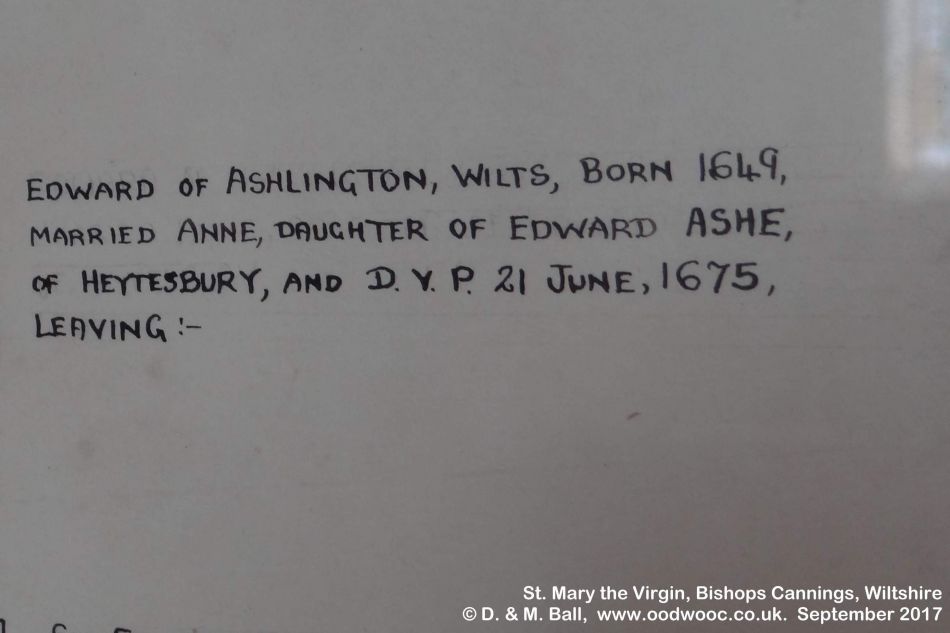 EDWARD OF ASHLINGTON, WILTS, BORN 1649,
MARRIED ANNE, DAUGHTER OF EDWARD ASHE,
OF HEYTESBURY, AND D. V. P. 21 JUNE, 1675,
LEAVING :-
St. Mary the Virgin, Bishops Cannings, Wiltshire
© D. & M. Ball, www.oodwooc.co.uk. September 2017